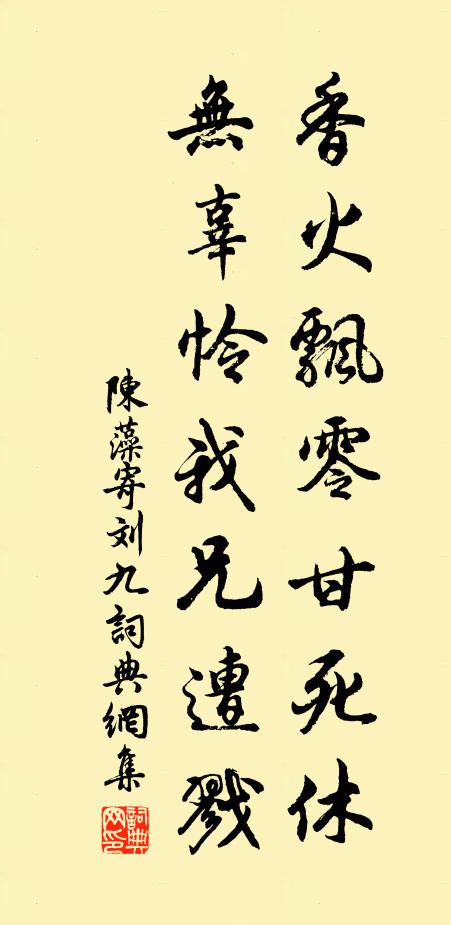 香火飄零甘死休
無辜怜我兄遭戮
陳藻寄刘九詞典網集
詞典網印